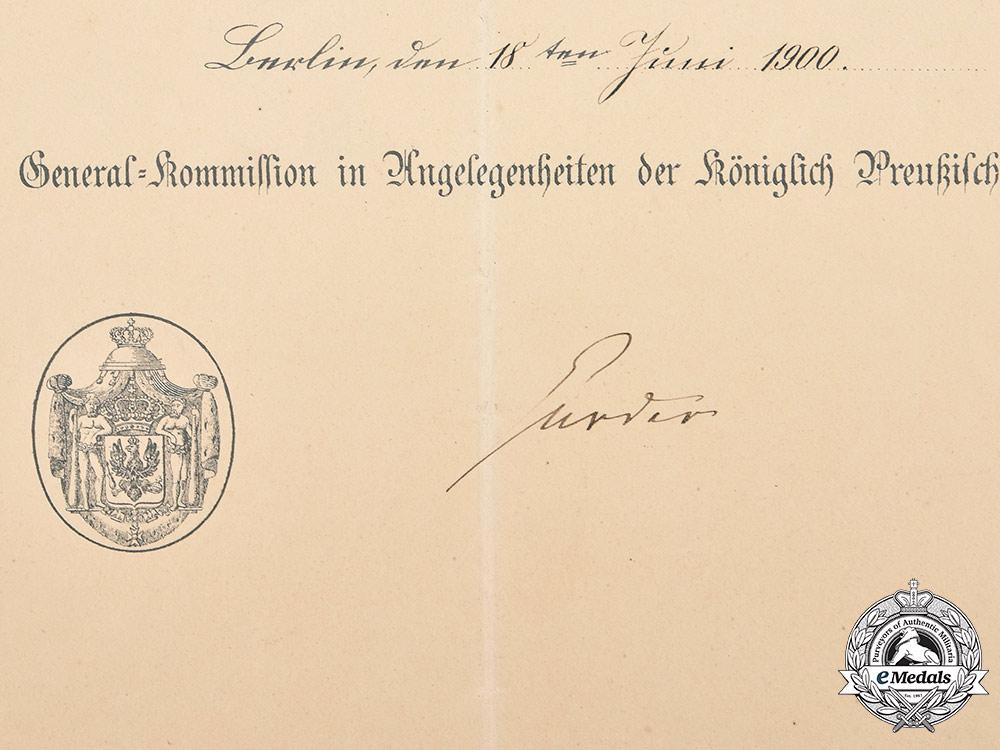 Berlin, den 18ten Juni 1900.
General-Kommission in Angelegenheiten der Königlich Preußisch
Purveyors of Authentic Militaria
eMedals
Est. 1997